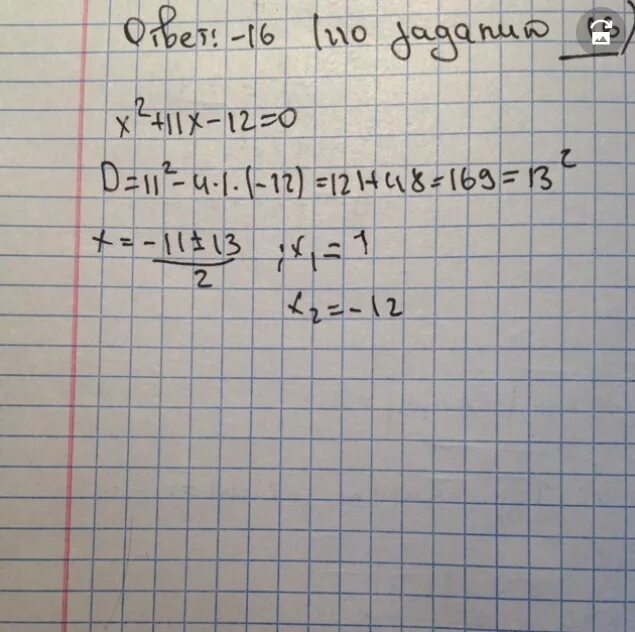 Ответ: -16 (по заданию
x²+11x-12=0
D=11²-4·1·(-12)=121+48=169=13²
x = (-11±13)/2 ; x₁=1
x₂=-12